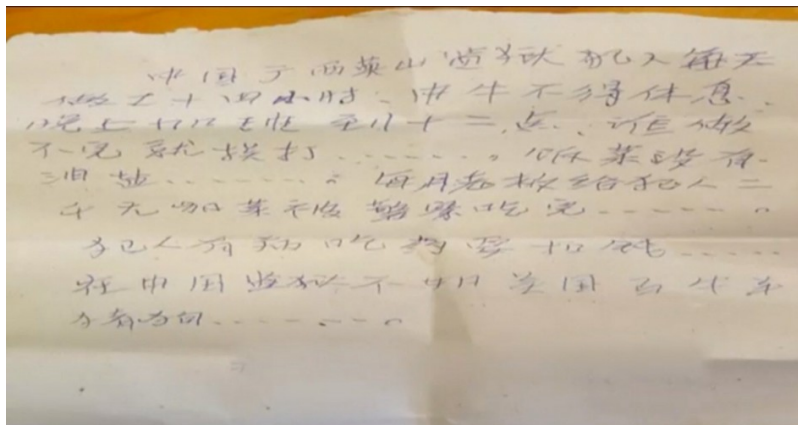 中国广西英山监狱犯人每天
做工十四小时、中午不得休息、
晚上加班到十二点、谁做
不完就挨打………。吃菜没有
油盐………。每月老板给犯人二
千元加菜被警察吃完………。
犯人有病吃药要扣钱………
在中国监狱不如美国百牛羊